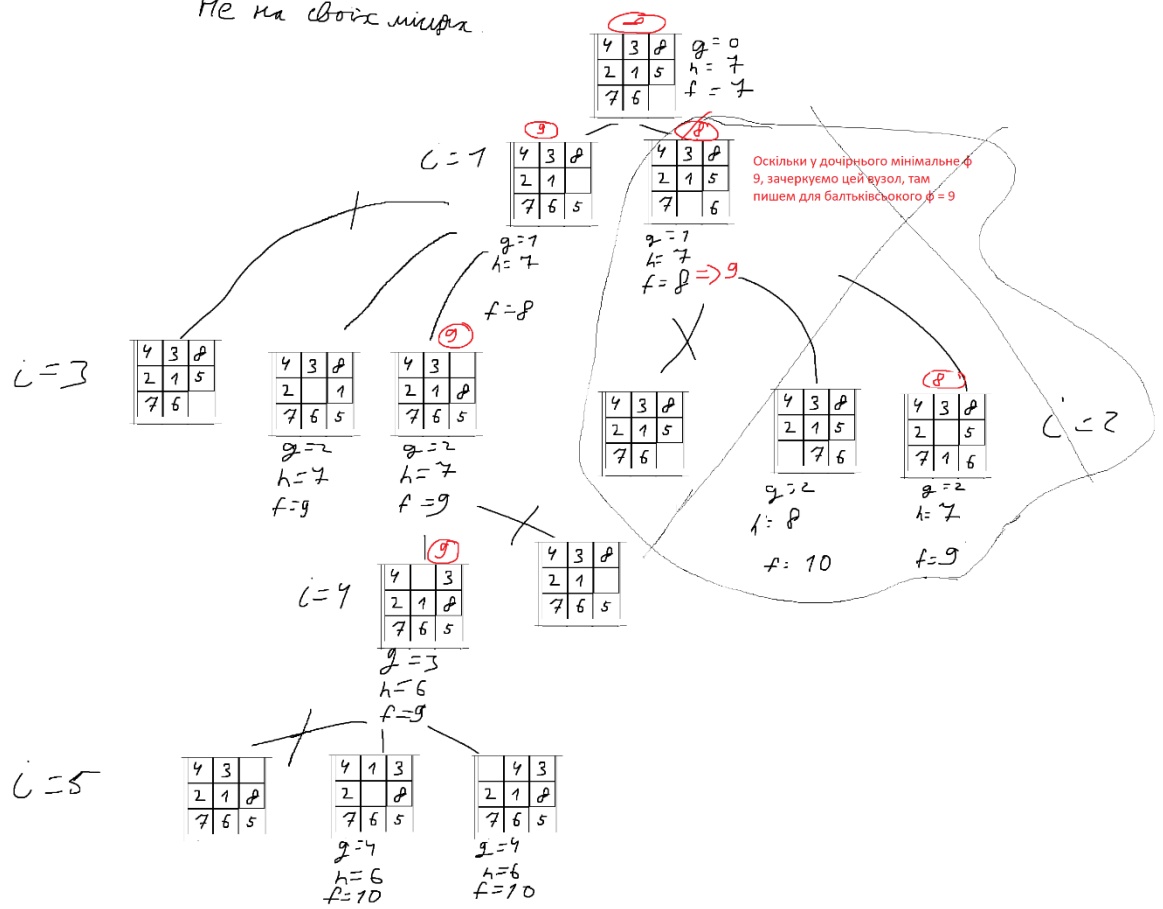 Не на своїх місцях.
8
4 3 8
2 1 5
7 6
g=0
h=7
f=7
i=1
9
4 3 8
2 1
7 6 5
g=1
h=7
f=8
8
4 3 8
2 1 5
7 6
g=1
h=7
f=8 => 9
Оскільки у дочірнього мінімальне ф
9, зачеркуємо цей вузол, там
пишем для балтьківсьокого ф = 9
i=3
4 3 8
2 1 5
7 6
4 3 8
2 1
7 6 5
g=2
h=7
f=9
9
4 3
2 1 8
7 6 5
g=2
h=7
f=9
4 3 8
2 1 5
7 6
4 3 8
2 1 5
7 6
g=2
h=8
f=10
8
4 3 8
2 5
7 1 6
g=2
h=7
f=9
i=2
i=4
9
4 3
2 1 8
7 6 5
g=3
h=6
f=9
4 3 8
2 1
7 6 5
i=5
4 3
2 1 8
7 6 5
4 1 3
2 8
7 6 5
g=4
h=6
f=10
4 3
2 1 8
7 6 5
g=4
h=6
f=10